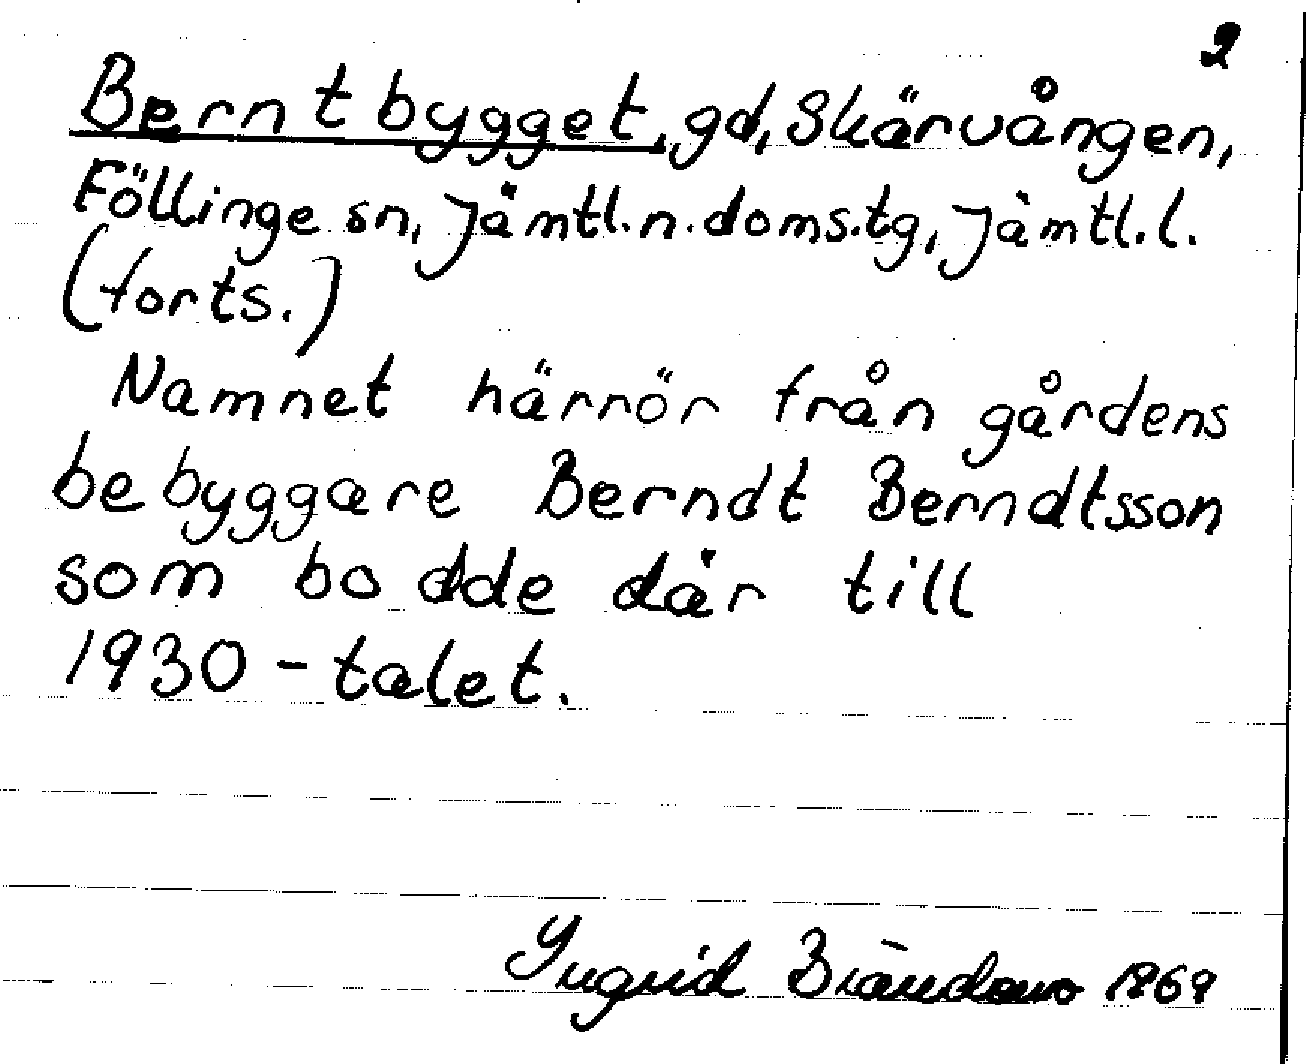 2
Berntbygget, gd, Skärvången,
Föllinge sn, Jämtl.n.doms.tg, Jämtl.l.
(forts.)
Namnet härrör från gårdens
bebyggare Berndt Berndtsson
som bodde där till
1930-talet.
Ingrid 1969